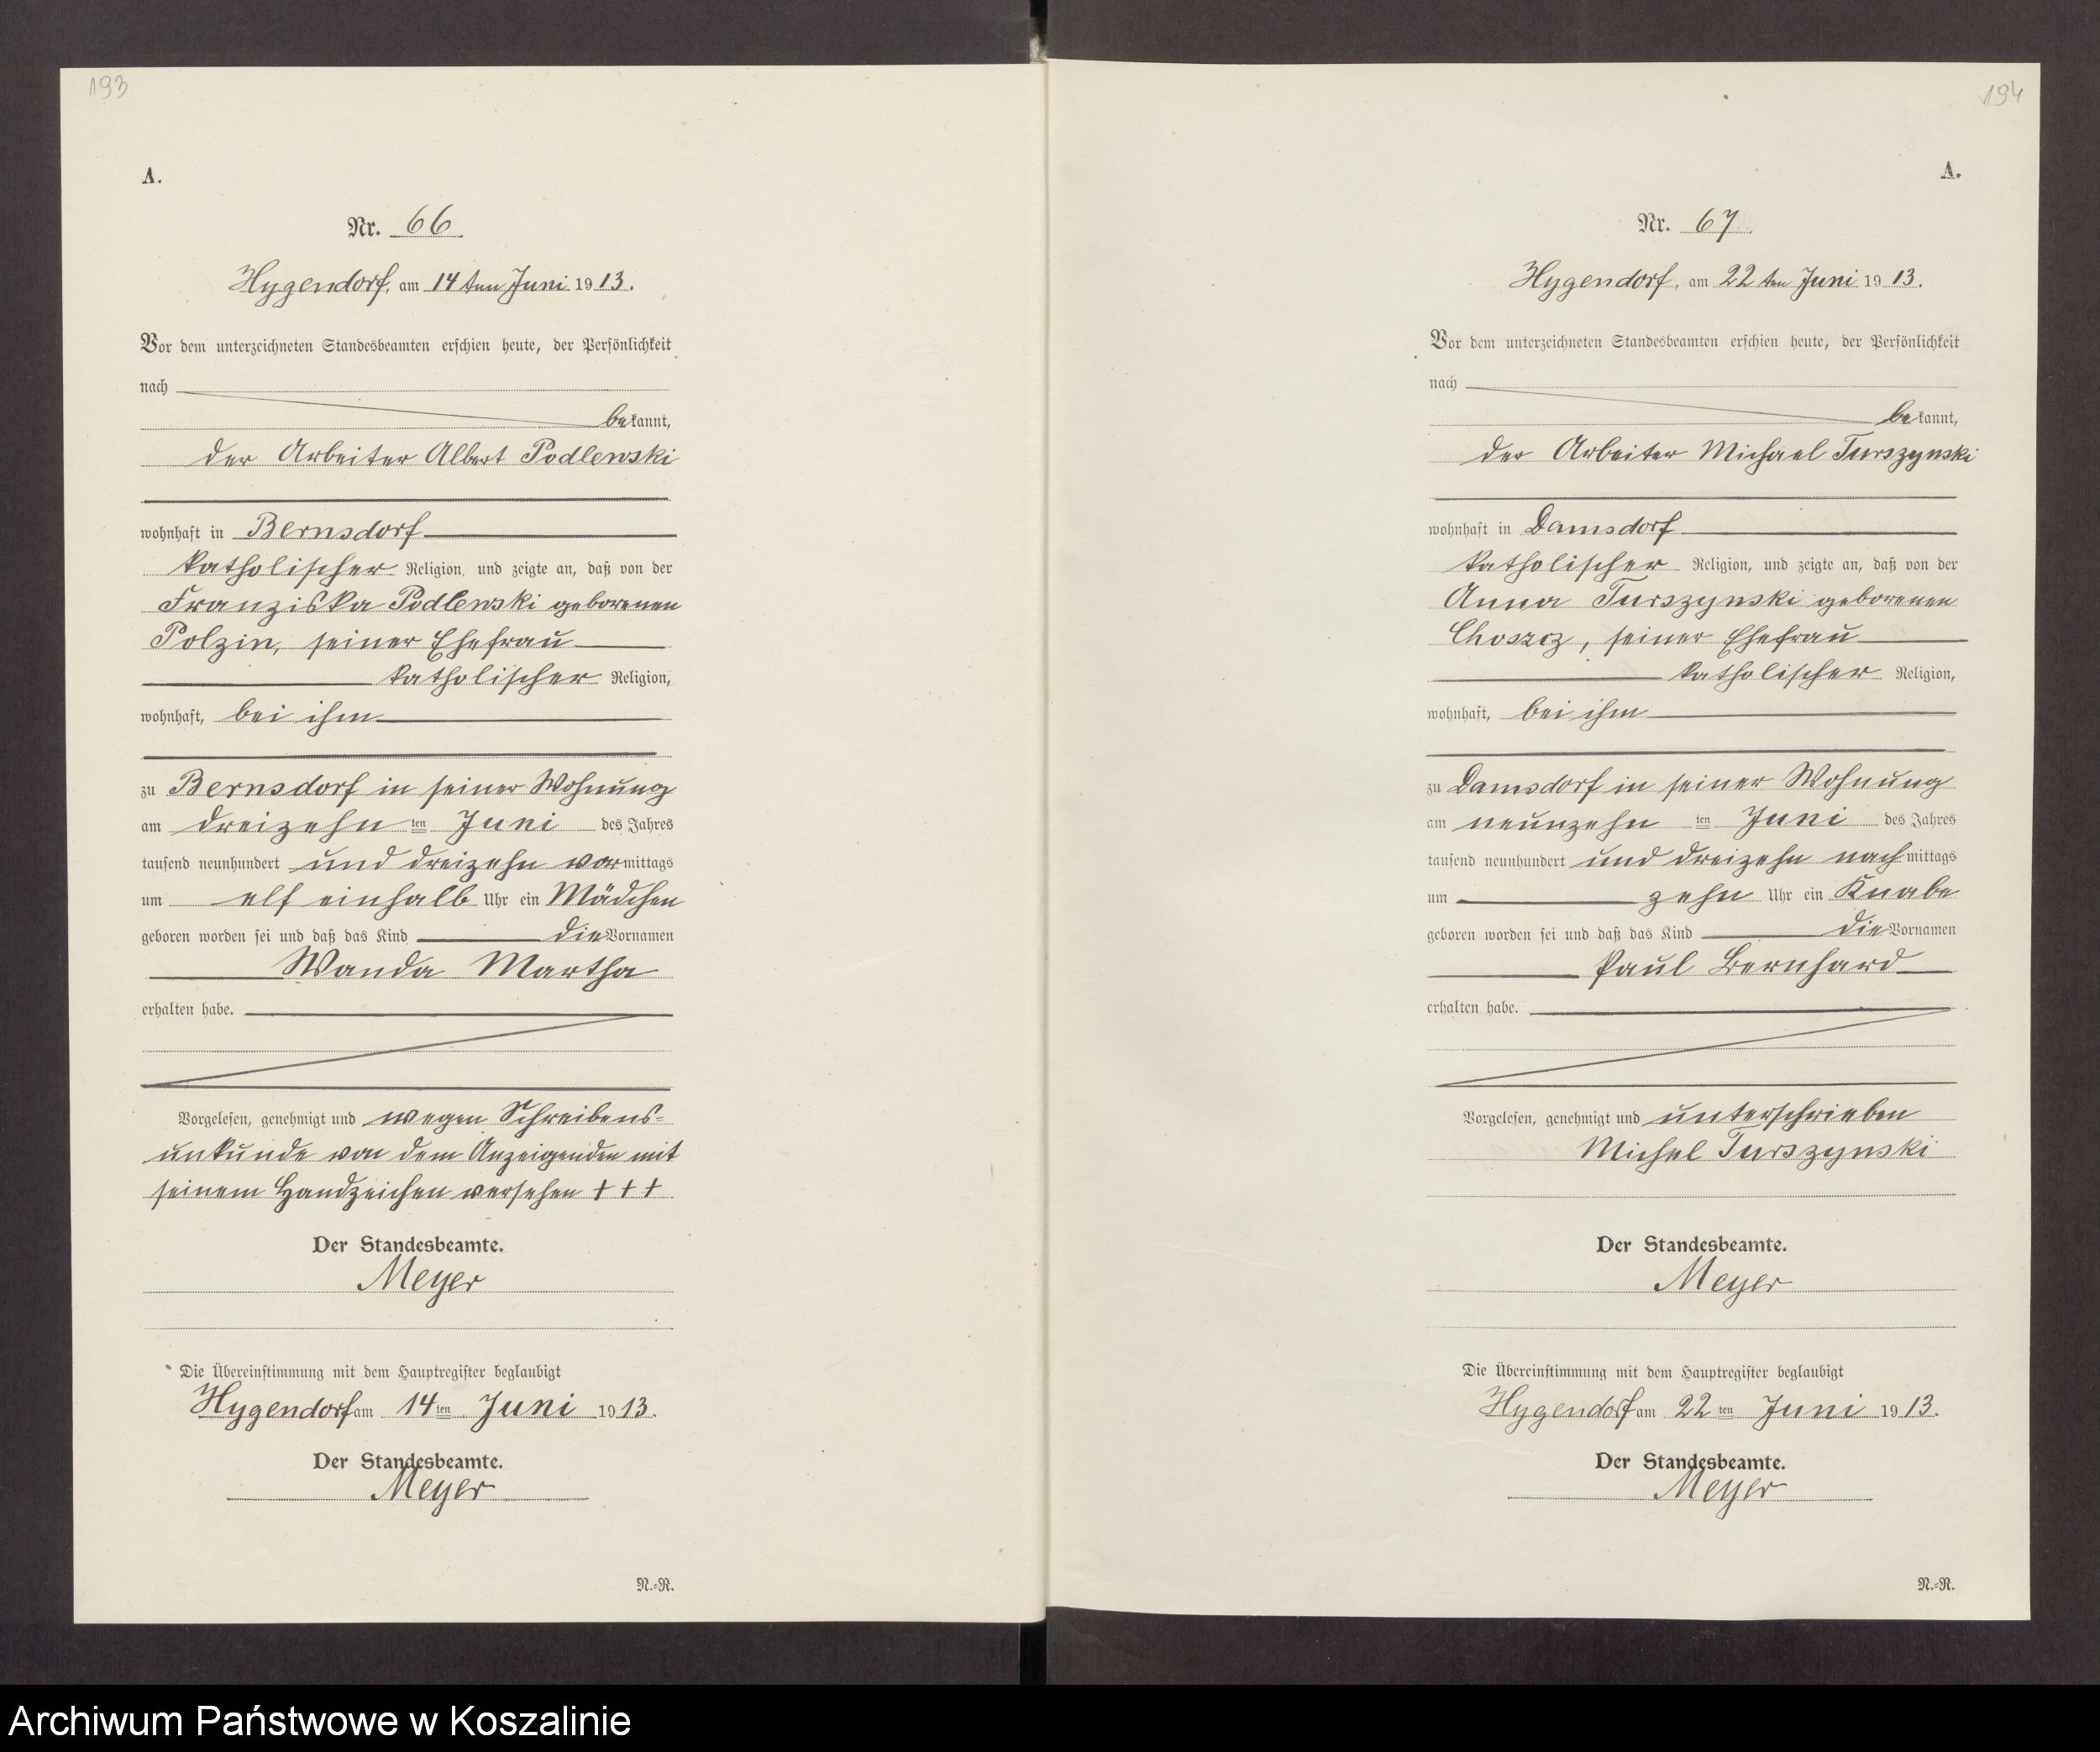 193
A.
Nr. 66
Hygendorf, am 14 ten Juni 1913.
Vor dem unterzeichneten Standesbeamten erschien heute, der Persönlichkeit
nach
bekannt,
der Arbeiter Albert Podlewski
wohnhaft in Bernsdorf
katholischer Religion, und zeigte an, daß von der
Franziska Podlewski geborenen
Polzin, seiner Ehefrau
katholischer Religion,
wohnhaft, bei ihm
zu Bernsdorf in seiner Wohnung
am dreizehn ten Juni des Jahres
tausend neunhundert und dreizehn vormittags
um elf einhalb Uhr ein Mädchen
geboren worden sei und daß das Kind die Vornamen
Wanda Martha
erhalten habe.
Vorgelesen, genehmigt und wegen Schreibens-
unkunde von dem Anzeigenden mit
seinem Handzeichen versehen + + +
Der Standesbeamte.
Meyer
Die Übereinstimmung mit dem Hauptregister beglaubigt
Hygendorf am 14 ten Juni 1913.
Der Standesbeamte.
Meyer
N.-R.
194
A.
Nr. 67
Hygendorf, am 22 ten Juni 1913.
Vor dem unterzeichneten Standesbeamten erschien heute, der Persönlichkeit
nach
bekannt,
der Arbeiter Michael Turszynski
wohnhaft in Damsdorf
katholischer Religion, und zeigte an, daß von der
Anna Turszynski geborenen
Choszcz, seiner Ehefrau
katholischer Religion,
wohnhaft, bei ihm
zu Damsdorf in seiner Wohnung
am neunzehn ten Juni des Jahres
tausend neunhundert und dreizehn nachmittags
um zehn Uhr ein Knabe
geboren worden sei und daß das Kind die Vornamen
Paul Bernhard
erhalten habe.
Vorgelesen, genehmigt und unterschrieben
Michel Turszynski
Der Standesbeamte.
Meyer
Die Übereinstimmung mit dem Hauptregister beglaubigt
Hygendorf am 22 ten Juni 1913.
Der Standesbeamte.
Meyer
N.-R.
Archiwum Państwowe w Koszalinie